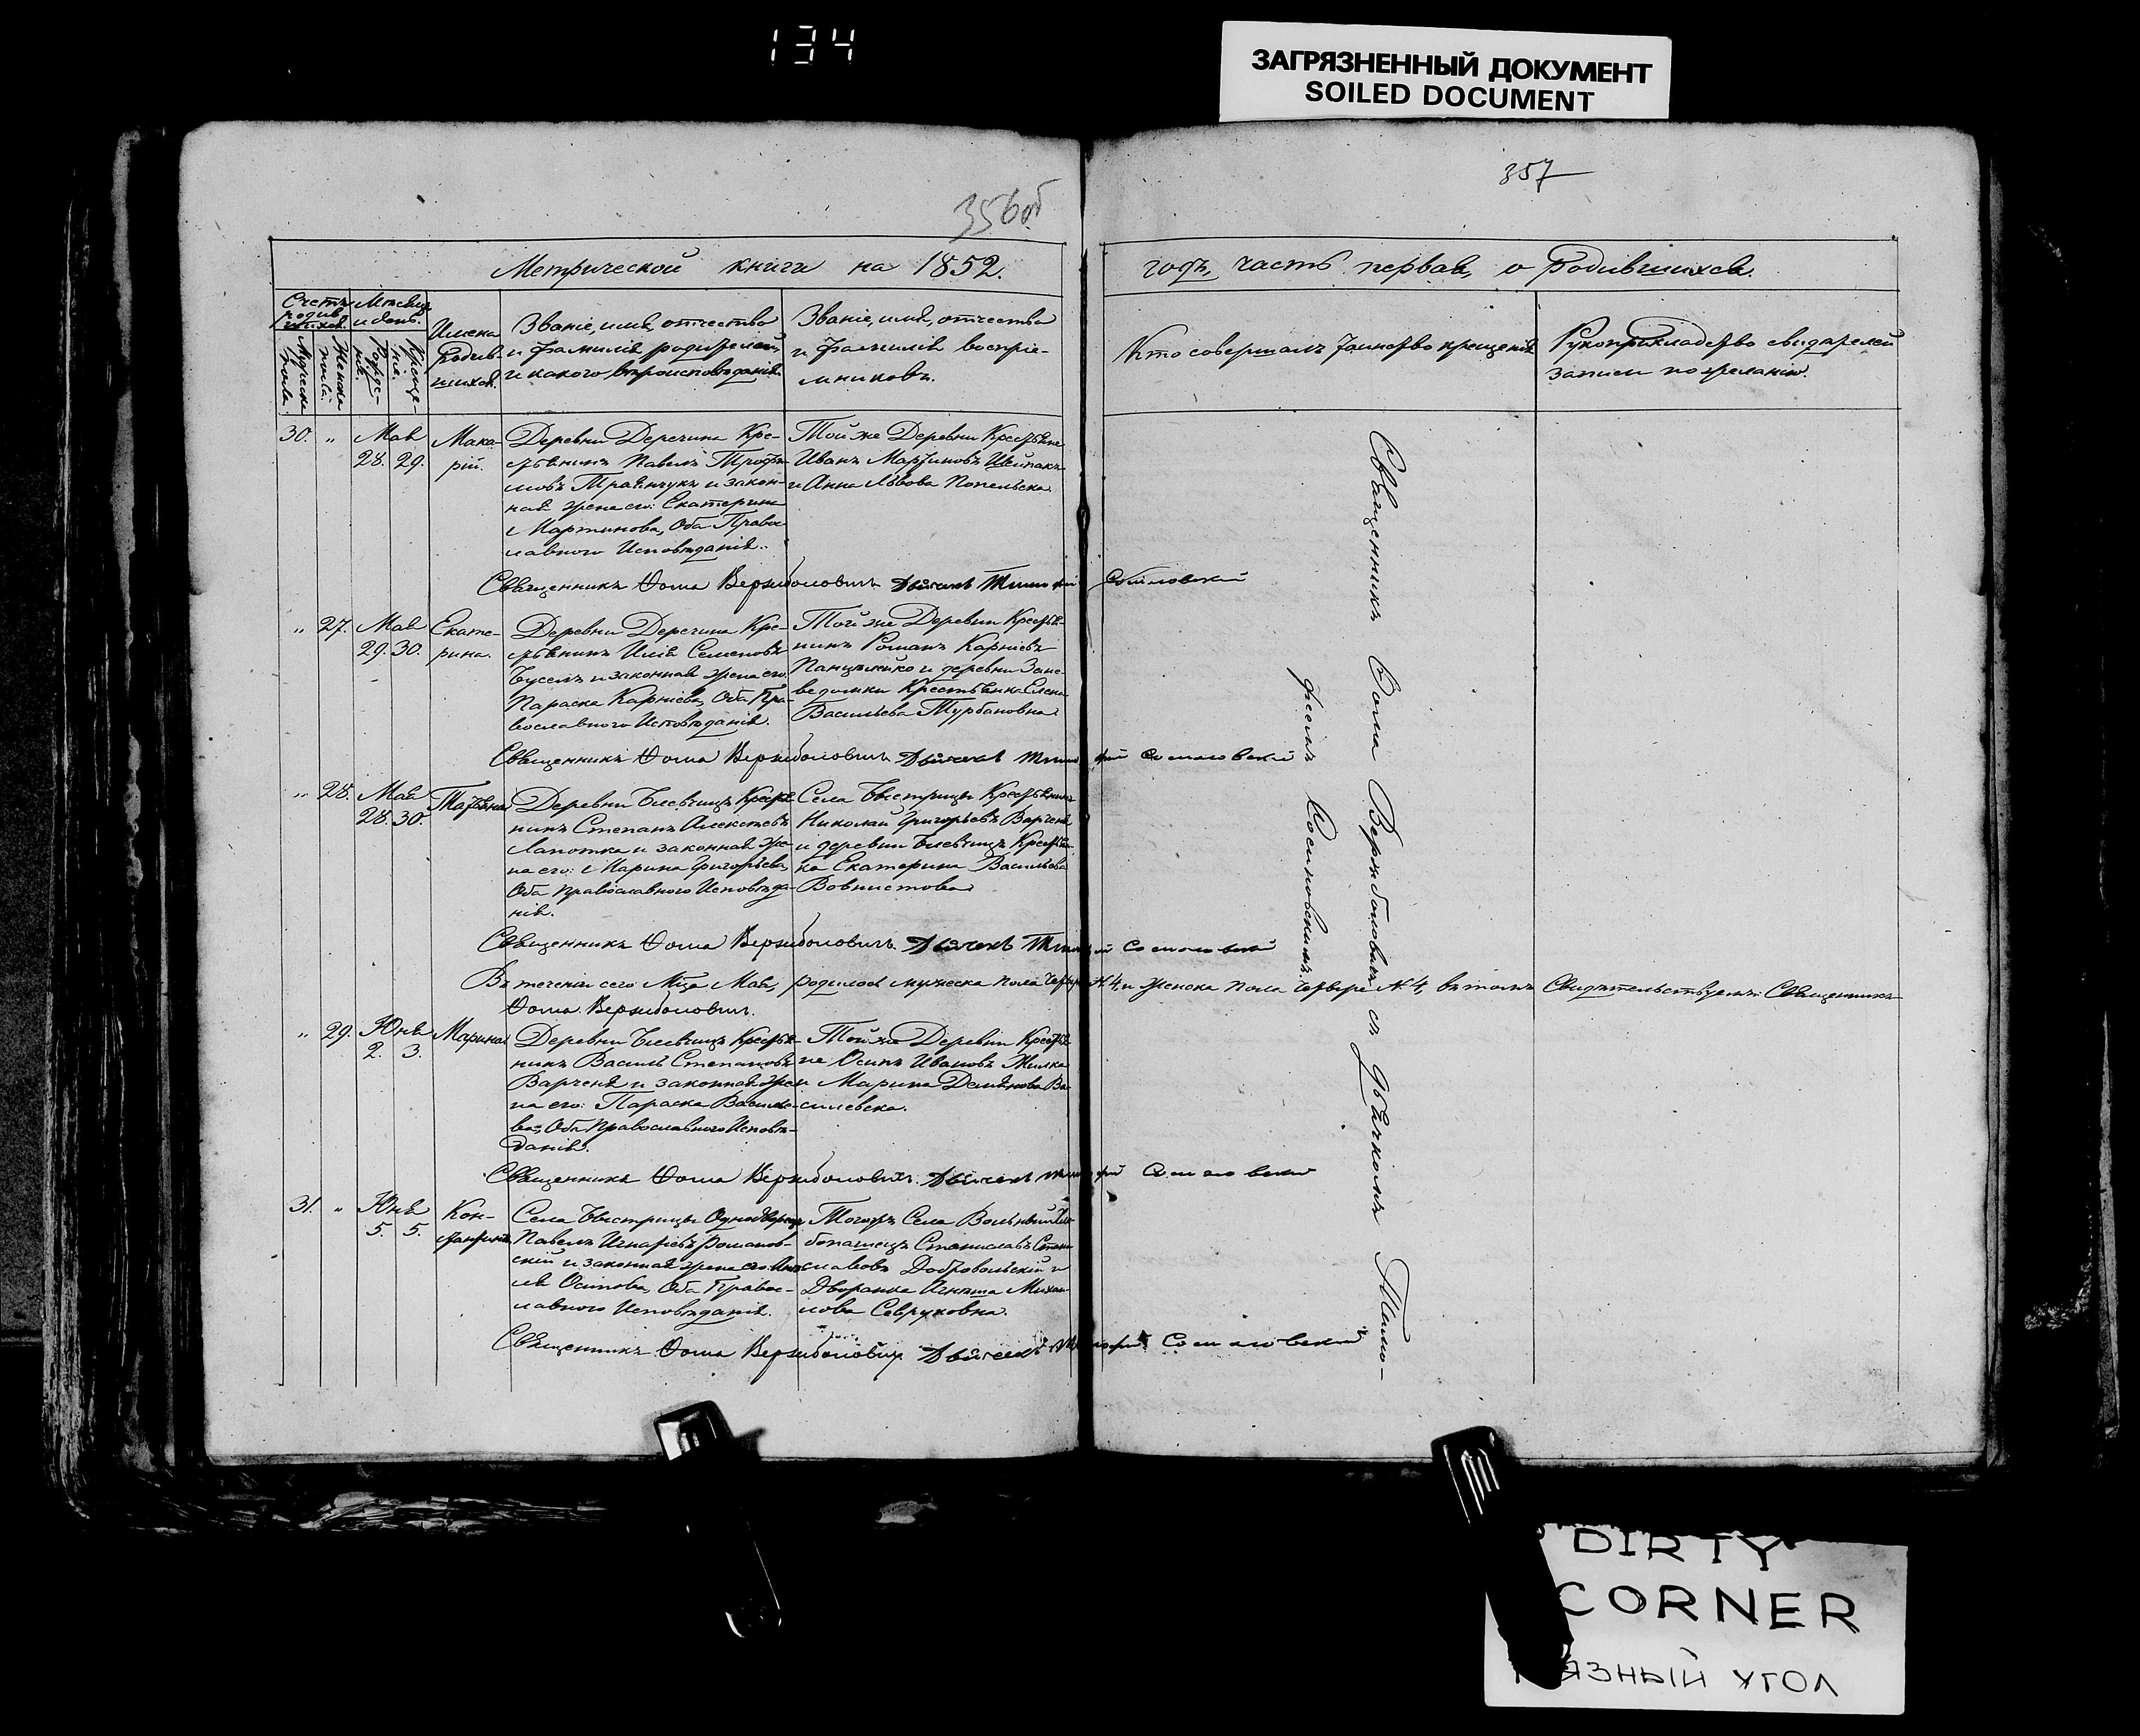 134
ЗАГРЯЗНЕННЫЙ ДОКУМЕНТ
SOILED DOCUMENT
356об
357
Метрической книги на 1852.
годъ, часть первая, о родившихся.
Счетъ родившихся.
Мужеска пола.
Женска пола.
Мѣсяцъ и день.
Рожденіе.
Крещеніе.
Имена родившихся.
Званіе, имя, отчество
и фамилія родителей,
и какого вѣроисповѣданія.
Званіе, имя, отчество
и фамилія воспріе-
мниковъ.
Кто совершалъ таинство крещенія
Рукоприкладство свидѣтелей
записи по желанію.
30. „ Мая 28. 29.
Мака-
рій.
Деревни Деречина Кре-
стьянинъ Павелъ Трофи-
мовъ Траянчукъ и закон-
ная жена его: Екатерина
Мартинова, Оба Правос-
лавного Исповѣданія.
Той же Деревни Крестьяне
Иванъ Мартиновъ Шейпакъ
и Анна Львова Попельска.
Священникъ Ѳома Вержболовичъ Дьячекъ Тимофій Сосиновскій
„ 27. Мая 29. 30.
Екате-
рина.
Деревни Деречина Кре-
стьянинъ Илія Семеновъ
Буселъ и законная жена его
Параска Карніева, Оба Пра-
вославного Исповѣданія.
Той же Деревни Крестья-
нинъ Романъ Карніевъ
Панцялейко и деревни Зане-
ведомки Крестьянка Елена
Васильева Турбановна
Священникъ Ѳома Вержболовичъ Дьячекъ Тимофій Сосиновскій
„ 28. Мая 28. 30.
Татьяна
Деревни Блевчицъ Крестья-
нинъ Степанъ Алексѣевъ
Лапотка и законная же-
на его: Марина Григорьева,
Оба Православного Исповѣда-
нія.
Села Быстрицы Крестьянинъ
Николай Григорьевъ Варченя
и деревни Блевчицъ Крестьян-
ка Екатерина Васильева
Вовчистова
Священникъ Ѳома Вержболовичъ Дьячекъ Тимофій Сосиновскій
Въ теченіи сего Мца Мая, родилося мужеска пола четыре №4, и женска пола четыре №4, въ томъ Свидѣтельствуемъ: Священникъ
Ѳома Вержболовичъ.
„ 29. Юня 2. 3.
Марина
Деревни Блевчицъ Крестья-
нинъ Василь Степановъ
Варченя и законная же-
на его: Параска Василье-
ва, Оба Православного Исповѣ-
данія.
Той же Деревни Крестья-
не Осипъ Ивановъ Жилка
и Марина Демянова Ва-
силевска.
Священникъ Ѳома Вержболовичъ. Дьячекъ Тимофій Сосиновскій
31. „ Юня 5. 5.
Кон-
стантинъ
Села Быстрицы Однодворецъ
Павелъ Игнатіевъ Романов-
скій и законная жена его
Осипова, Оба Правос-
лавного Исповѣданія.
Тогожъ Села Вольный Хлѣ-
бопашецъ Станиславъ Стани-
славовъ Добровольскій и
Дворанка Игната Михай-
лова Севруковна.
Священникъ Ѳома Вержболовичъ Дьячекъ Тимофій Сосиновскій
Священникъ Ѳома Вержболовичъ съ Дьячкомъ Тимо-
фѣемъ Сосиновскимъ.
DIRTY
CORNER
ЯЗНЫЙ УГОЛ